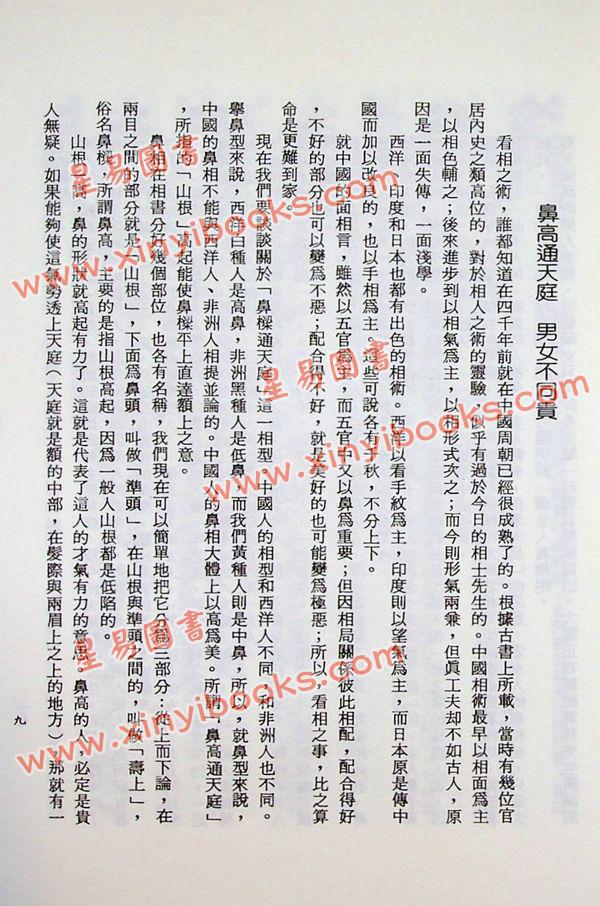 鼻高通天庭　男女不同貴
看相之術，誰都知道在四千年前就在中國周朝已經很成熟了的。根據古書上所載，當時有幾位官
居內史之類高位的，對於相人之術的靈驗，似乎有過於今日的相士先生的。中國相術最早以相面爲主
，以相色輔之；後來進步到以相氣爲主，以相形式次之；而今則形氣兩兼，但眞工夫却不如古人，原
因是一面失傳，一面淺學。
西洋、印度和日本也都有出色的相術。西洋以看手紋爲主，印度則以望氣爲主，而日本原是傳中
國而加以改良的，也以手相爲主。這些可說各有千秋，不分上下。
就中國的面相言，雖然以五官爲主，而五官中又以鼻爲重要；但因相局關係彼此相配，配合得好
，不好的部分也可以變爲不惡；配合得不好，就是美好的也可能變爲極惡；所以，看相之事，比之算
命是更難到家。
現在我們要談談關於「鼻樑通天庭」這一相型。中國人的相型和西洋人不同，和非洲人也不同。
舉鼻型來說，西洋白種人是高鼻，非洲黑種人是低鼻，而我們黃種人則是中鼻，所以，就鼻型來說，
中國的鼻相不能與西洋人、非洲人相提並論的。中國人的鼻相大體上以高爲美。所謂「鼻高通天庭」
，所指的「山根」高起能使鼻樑平上直達額上之意。
鼻相在相書分好幾個部位，也各有名稱，我們現在可以簡單地把它分爲三部分：從上而下論，在
兩目之間的部分就是「山根」，下面爲鼻頭，叫做「準頭」，在山根與準頭之間的，叫做「壽上」，
俗名鼻樑，所謂鼻高，主要的是指山根高起，因爲一般人山根都是低陷的。
山根一高，鼻的形狀就高起有力了。這就是代表了這人的才氣有力的意思。鼻高的人，必定是貴
人無疑。如果能夠使這氣勢透上天庭（天庭就是額的中部，在髮際與兩眉上之上的地方）那就有一
九
星易圖書
www.xinyibooks.com
星易圖書
www.xinyibooks.com
星易圖書
www.xinyibooks.com
星易圖書
www.xinyibooks.com